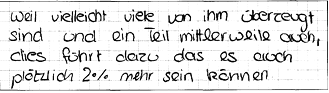 weil vielleicht viele von ihm überzeugt
sind und ein Teil mittlerweile auch,
dies führt dazu das es auch
plötzlich 2% mehr sein können